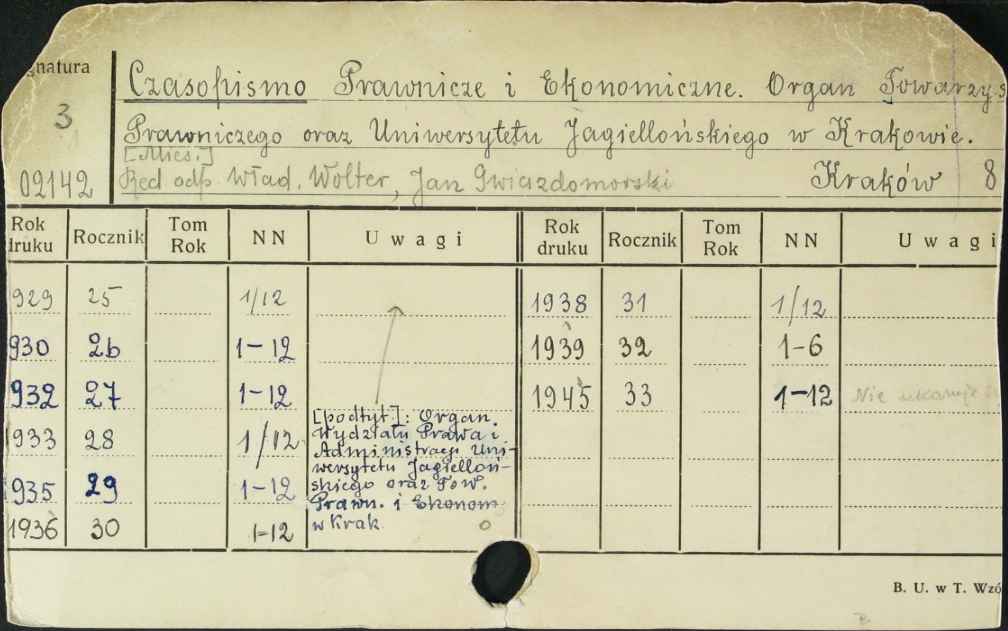 gnatura
3
02142
Czasopismo Prawnicze i Ekonomiczne. Organ Towarzys
Prawniczego oraz Uniwersytetu Jagiellońskiego w Krakowie.
[Mies.]
Red odp. Wład. Wolter, Jan Gwiazdomorski Kraków 8
Rok druku Rocznik Tom Rok NN Uwagi Rok druku Rocznik Tom Rok NN Uwagi
929 25 1/12 1938 31 1/12
930 26 1-12 1939 32 1-6
932 27 1-12 1945 33 1-12 Nie ukazuje
1933 28 1/12
1935 29 1-12
1936 30 1-12
[podtyt.]: Organ.
Wydziału Prawa i
Administracji Uni-
wersytetu Jagielloń-
skiego oraz Tow.
Prawn. i Ekonom
w Krak.
B. U. w T. Wzó